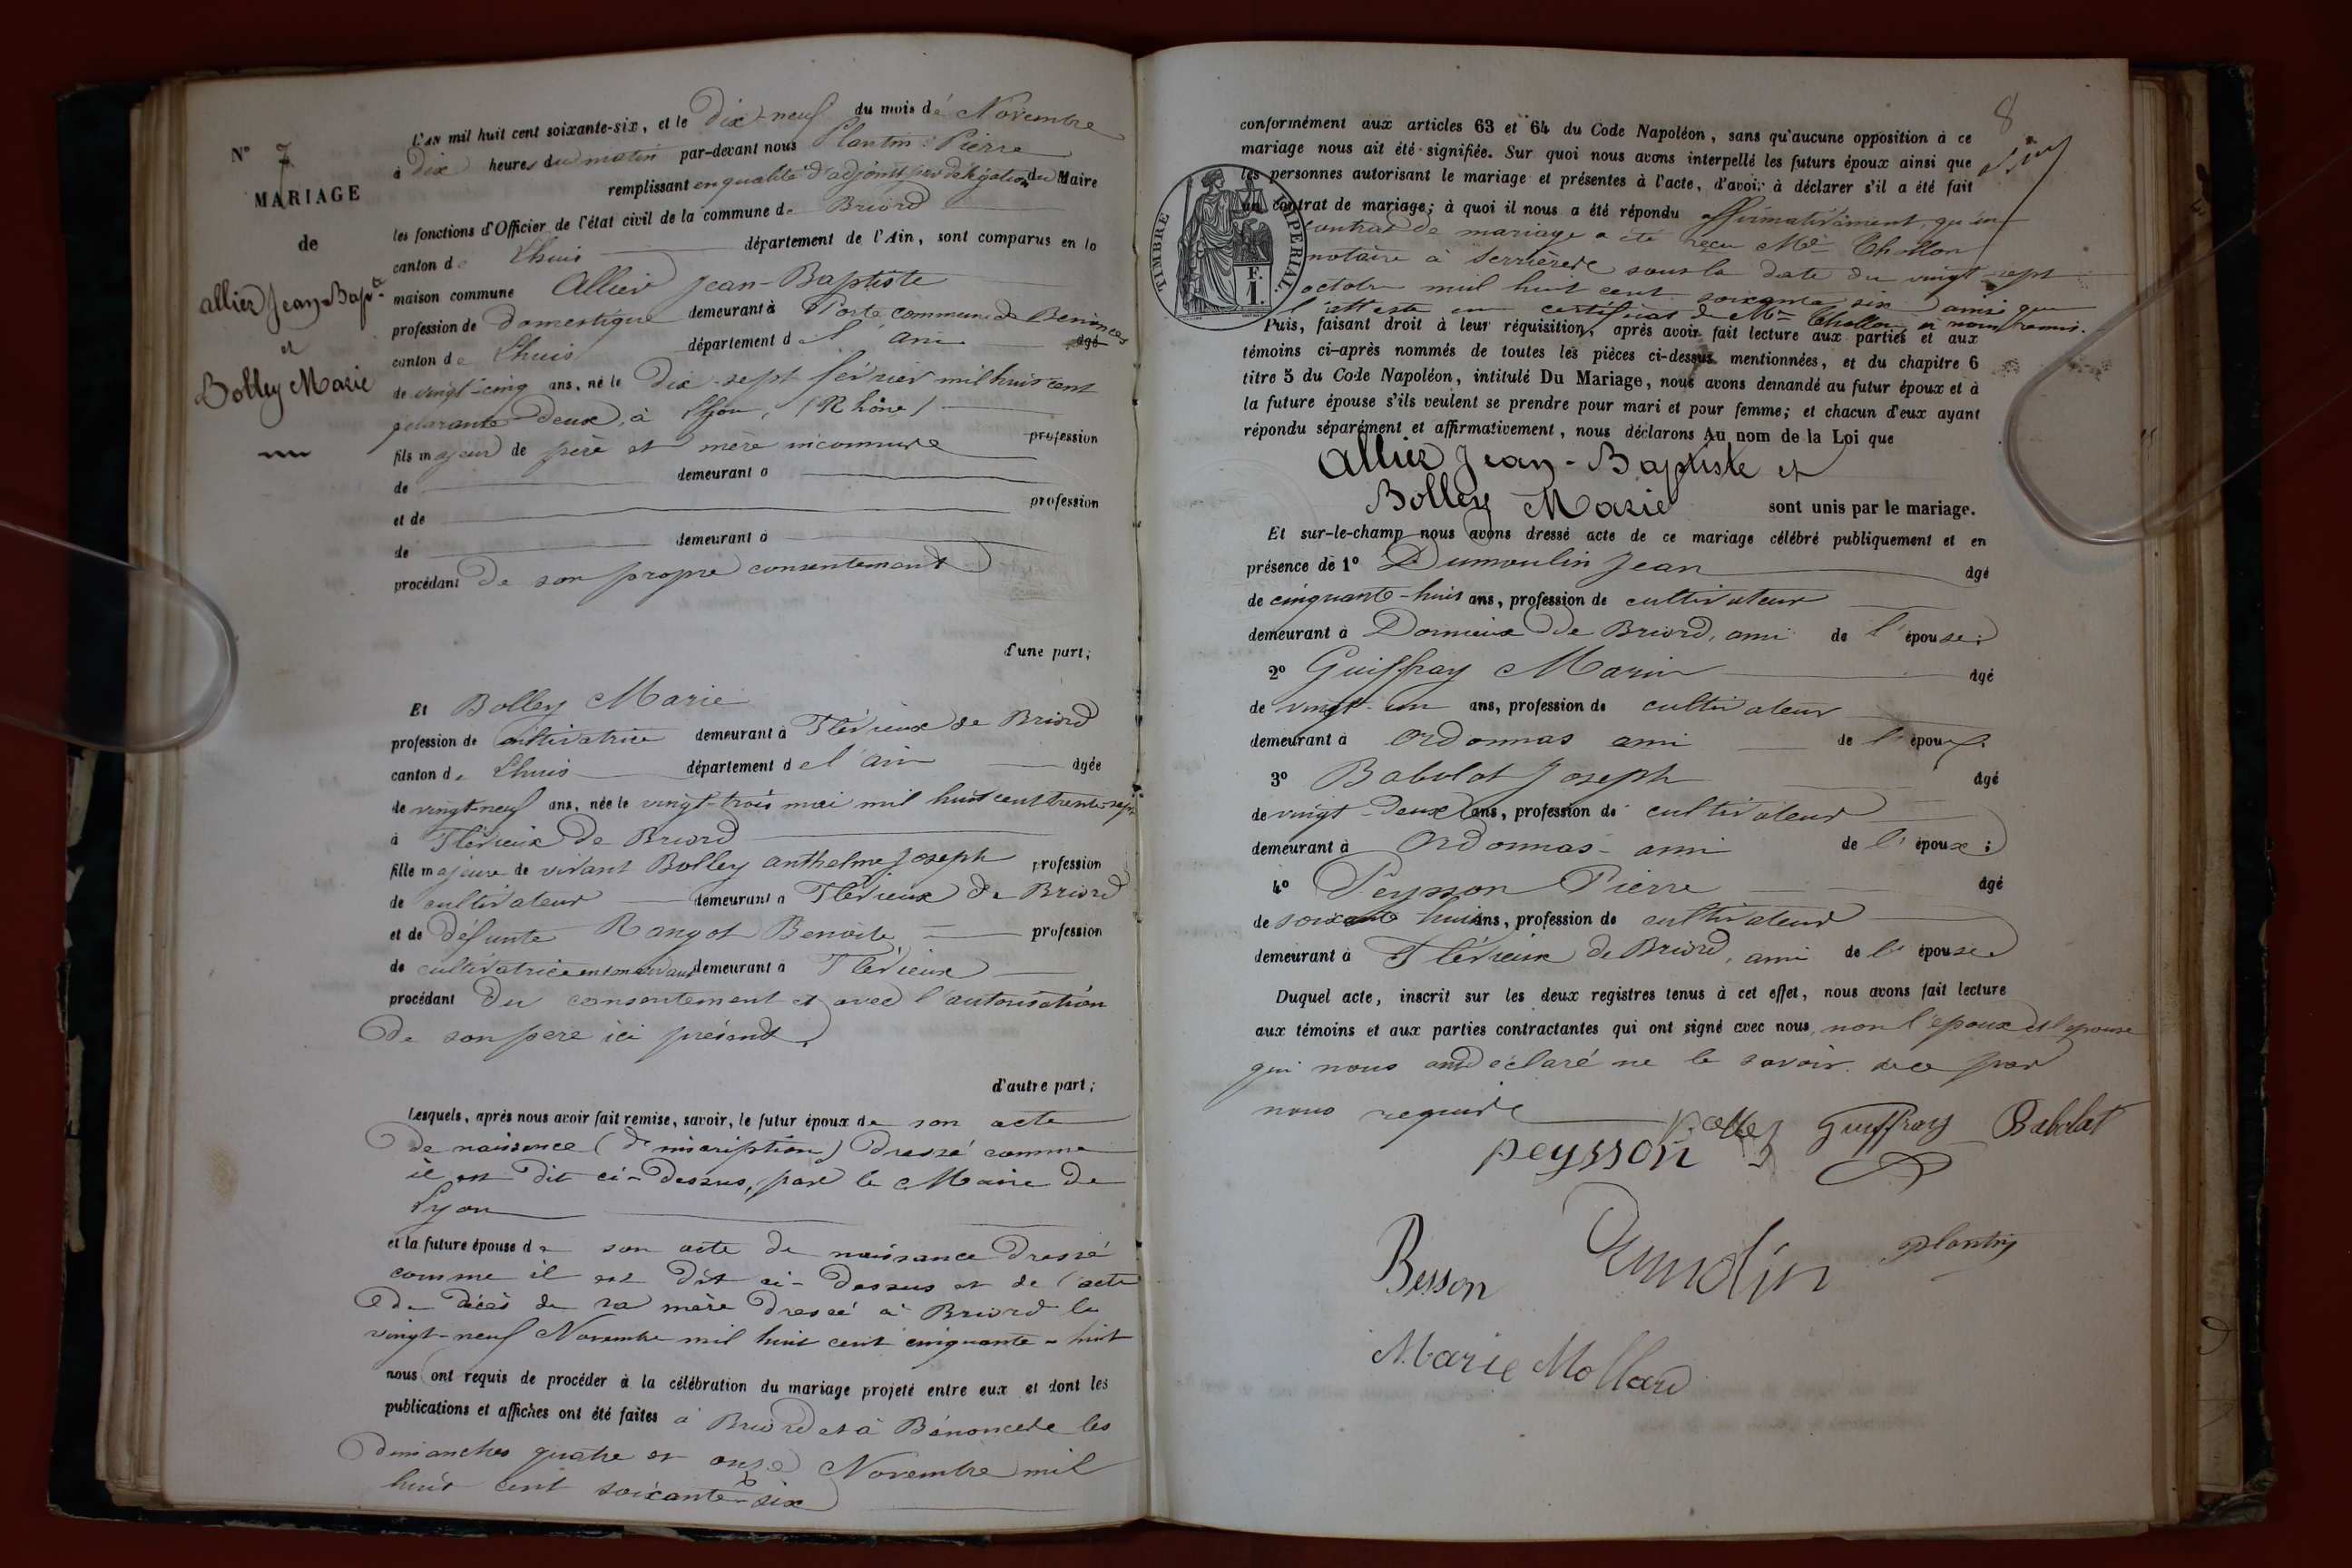 N° 7
MARIAGE
de
Allier Jean-Bapte
et
Bolley Marie
L'AN mil huit cent soixante-six, et le Dix-neuf du mois de Novembre
à Dix heures du matin par-devant nous Plantin Pierre
remplissant en qualité d'adjoint par délégation du Maire
les fonctions d'Officier de l'état civil de la commune de Briord
canton de Lhuis département de l'Ain, sont comparus en la
maison commune Allier Jean-Baptiste
profession de Domestique demeurant à Porte commune de Benonces
canton de Lhuis département de l'ain âgé
de vingt-cinq ans, né le Dix-sept février mil huit cent
quarante-deux, à Lyon, (Rhône)
fils majeur de père et mère inconnus profession
de demeurant à
et de profession
de demeurant à
procédant de son propre consentement
d'une part;
Et Bolley Marie
profession de cultivatrice demeurant à Flévieux de Briord
canton de Lhuis département de l'ain âgée
de vingt-neuf ans, née le vingt-trois mai mil huit cent trente-sept
à Flévieux de Briord
fille majeure de vivant Bolley anthelme Joseph profession
de cultivateur demeurant à Flévieux de Briord
et de défunte Rangot Benoite profession
de cultivatrice en son vivant demeurant à Flévieux
procédant du consentement et avec l'autorisation
de son père ici présent,
d'autre part;
Lesquels, après nous avoir fait remise, savoir, le futur époux de son acte
de naissance (d'inscription) dressé comme
il est dit ci-dessus, par le Maire de
Lyon
et la future épouse de son acte de naissance dressé
comme il est dit ci-dessus et de l'acte
de décès de sa mère dressé à Briord le
vingt-neuf Novembre mil huit cent cinquante-huit
nous ont requis de procéder à la célébration du mariage projeté entre eux et dont les
publications et affiches ont été faites à Briord et à Bénonces les
Dimanches quatre et onze Novembre mil
huit cent soixante-six
8
conformément aux articles 63 et 64 du Code Napoléon, sans qu'aucune opposition à ce
mariage nous ait été signifiée. Sur quoi nous avons interpellé les futurs époux ainsi que
les personnes autorisant le mariage et présentes à l'acte, d'avoir à déclarer s'il a été fait
un contrat de mariage; à quoi il nous a été répondu affirmativement, qu'un
contrat de mariage a été reçu Me Chollon
notaire à Serrières sous la date du vingt-sept
octobre mil huit cent soixante six ainsi que
l'atteste un certificat de Me Chollon à nous remis.
TIMBRE IMPERIAL
F.
1.
Puis, faisant droit à leur réquisition, après avoir fait lecture aux parties et aux
témoins ci-après nommés de toutes les pièces ci-dessus mentionnées, et du chapitre 6
titre 5 du Code Napoléon, intitulé Du Mariage, nous avons demandé au futur époux et à
la future épouse s'ils veulent se prendre pour mari et pour femme; et chacun d'eux ayant
répondu séparément et affirmativement, nous déclarons Au nom de la Loi que
Allier Jean-Baptiste et
Bolley Marie sont unis par le mariage.
Et sur-le-champ nous avons dressé acte de ce mariage célébré publiquement et en
présence de 1° Dumoulin Jean âgé
de cinquante-huit ans, profession de cultivateur
demeurant à Dornieux de Briord, ami de l'épouse;
2° Guiffray Marin âgé
de vingt-un ans, profession de cultivateur
demeurant à Ordonnas ami de l'époux;
3° Babolat Joseph âgé
de vingt-deux ans, profession de cultivateur
demeurant à Ordonnas ami de l'époux;
4° Peysson Pierre âgé
de soixante huit ans, profession de cultivateur
demeurant à Flévieux de Briord, ami de l'épouse
Duquel acte, inscrit sur les deux registres tenus à cet effet, nous avons fait lecture
aux témoins et aux parties contractantes qui ont signé avec nous, non l'époux et l'épouse
qui nous ont déclaré ne le savoir de ce par
nous requis
Bolley Guiffray Babolat
peysson
Besson Dumolin Plantin
Marie Mollard